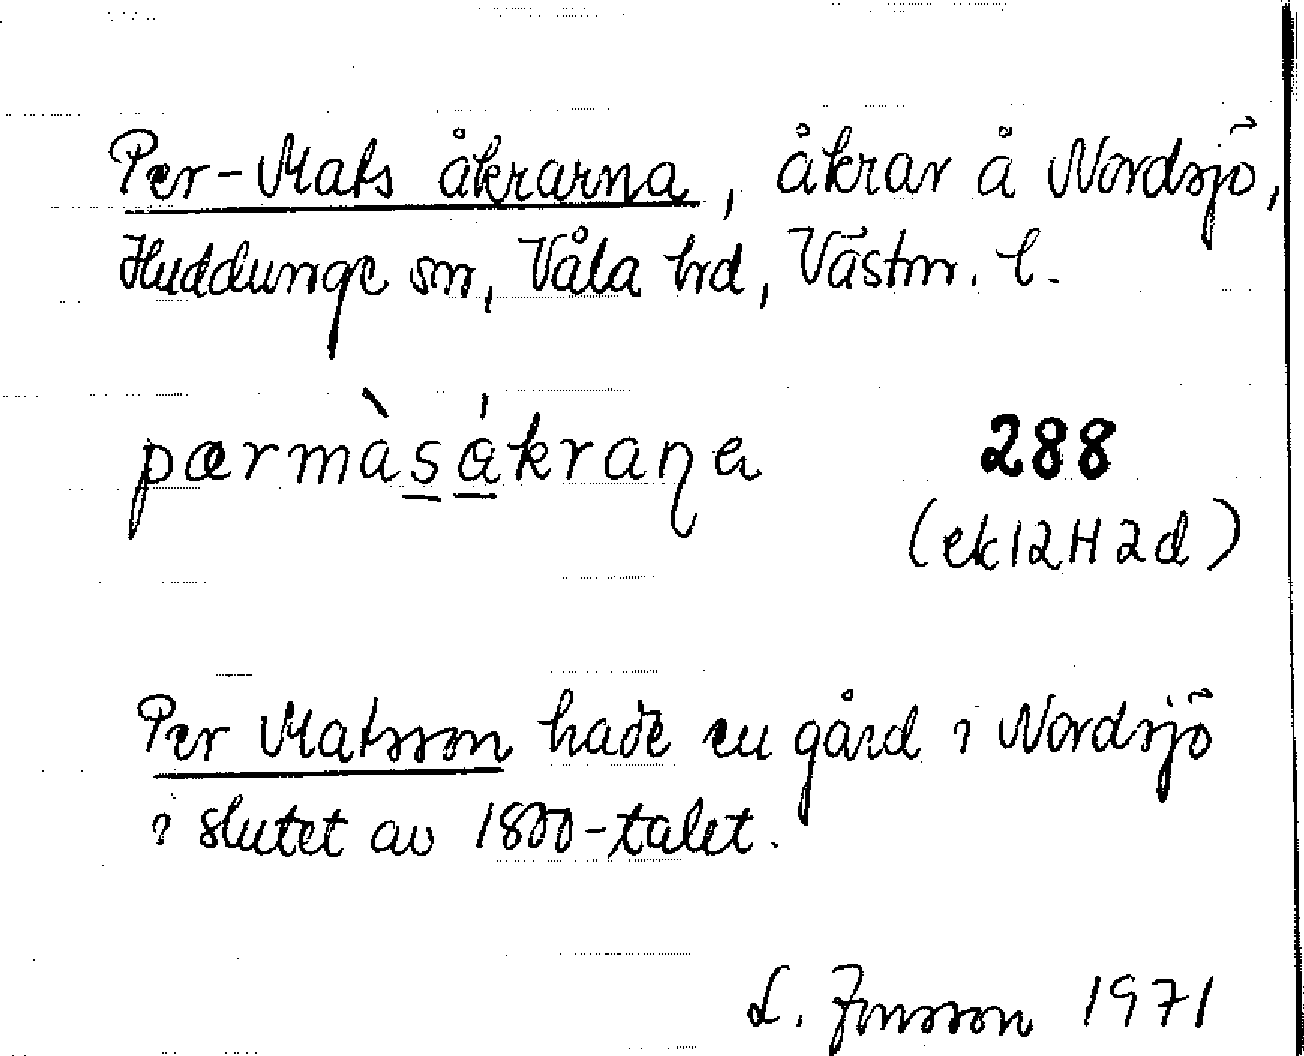 Per-Mats åkrarna, åkrar å Nordsjö,
Huddunge sn, Våla hd, Västm. l.
pærmàsákraɳa
288
(ek 12H2d)
Per Matsson hade en gård i Nordsjö
i slutet av 1800-talet.
L. Jonsson 1971